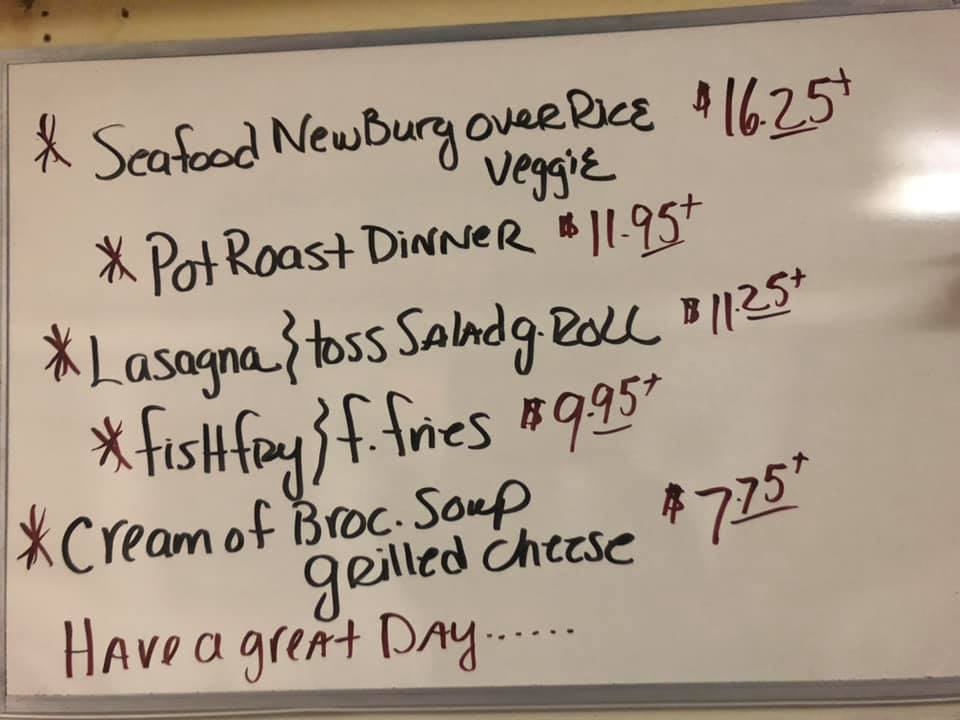 * Seafood NewBurg over Rice $16.25+
veggie
* Pot Roast Dinner $11.95+
* Lasagna } toss Salad g. Roll $11.25+
* fish fry } f. fries $9.95+
* Cream of Broc. Soup $7.75+
grilled cheese
Have a great Day......